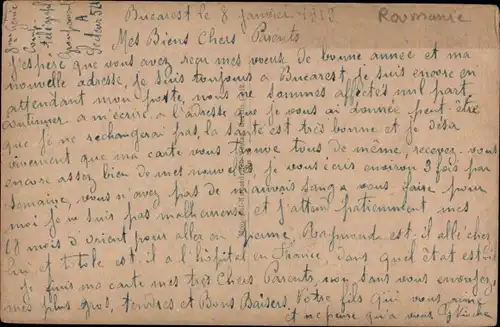 Bucarest le 8 janvier 1919
Roumanie
Mes Biens Chers Parents
J'espère que vous avez reçu mes voeux de bonne année et ma
nouvelle adresse, je suis toujours a Bucarest, je suis encore en
attendant mon poste, nous ne sommes affectés nul part
continuer a m'ecrire a l'adresse que je vous ai donnée peut-être
que je ne rechangerai pas, la santé est très bonne et je désir
vivement que ma carte vous trouve tous de même, recevez-vous
encore assez bien de mes nouvelles, je vous ecris environ 3 fois par
semaine, vous n'avez pas de mauvais sang a vous faire pour
moi je ne suis pas malheureux et j'attend patiemment mes
18 mois d'orient pour aller en perme, Raymond est-il allé chez
lui et totole est-il a l'hôpital en France, dans quel état est-il
je finis ma carte mes très Chers Parents, non sans vous envoyer
mes plus gros, tendres et Bons Baisers, Votre fils qui vous aime
et ne pense qu'a vous